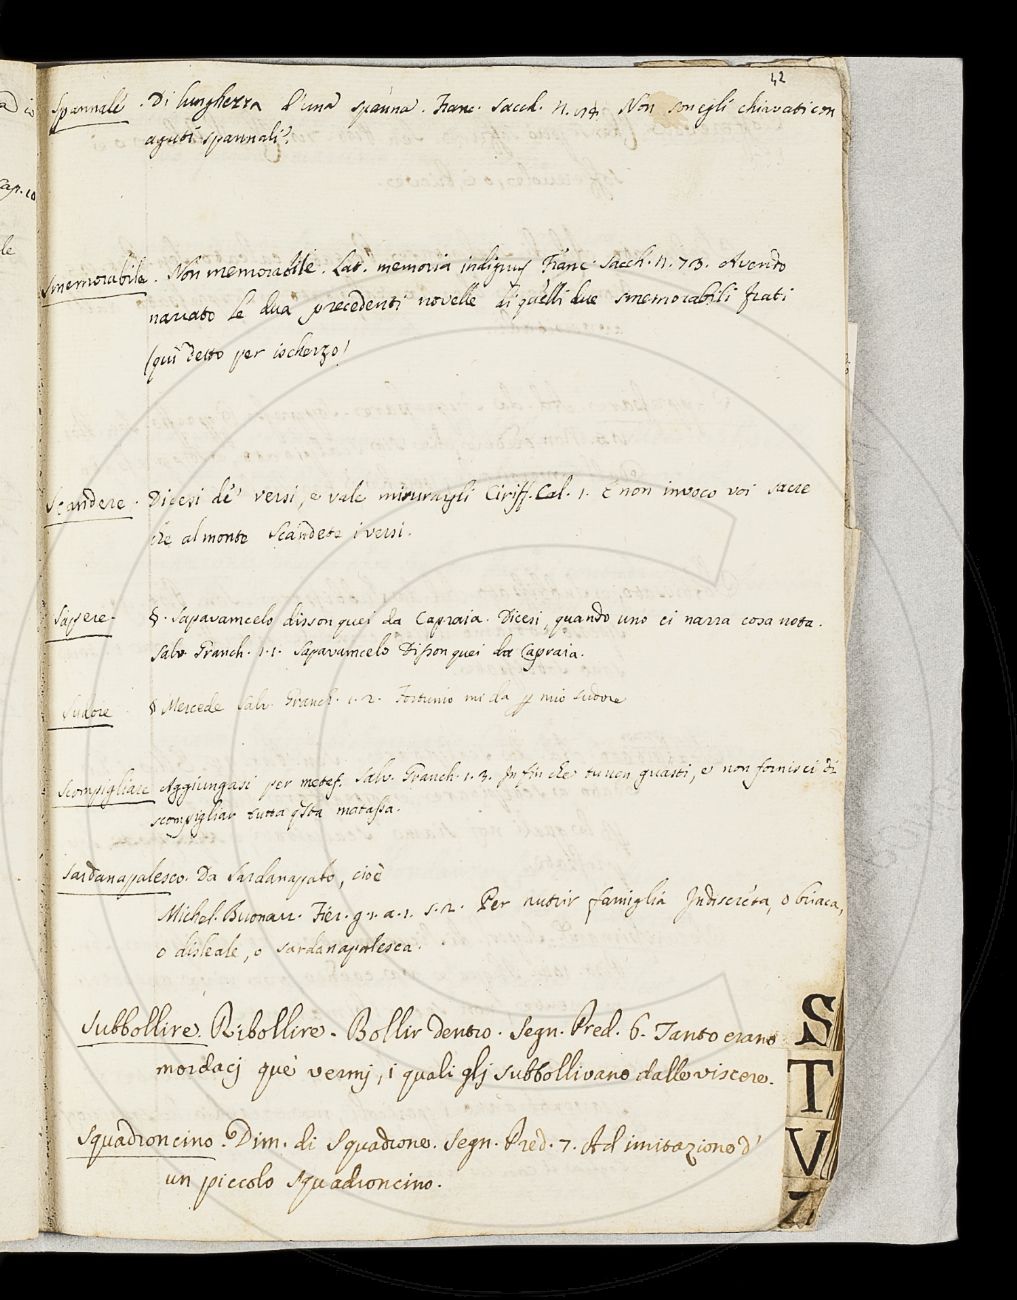 42
Spannale. Di lunghezza d'una spanna. Franc. Sacch. n. Non son egli chiavati con
aguti spannali?
Smemorabile. Non memorabile. Lat. memoria indignus Franc. Sacch. n. 73. Avendo
narrato le dua precedenti novelle di quelli due smemorabili frati
(qui detto per ischerzo)
Scandere. Dicesi de' versi, e vale misurargli Ciriff. Cal. 1. E non invoco voi sacre
che al monte Scandete i versi.
Sapere. §. Sapavamcelo disson quei da Capraia. Dicesi, quando uno ci narra cosa nota.
Salv. Granch. 1.1. Sapavamcelo Disson quei da Capraia.
Sudore § Mercede Salv. Granch. 1.2. Fortunio mi da p mio sudore
Scompigliare Aggiungasi per metaf. Salv. Granch. 1.3. Infin che tu non guasti, e non fornisci di
scompigliar tutta qsta matassa.
Sardanapalesco. Da Sardanapalo, cioè
Michel. Buonarr. Fier. g. 1. a. 1. s. 2. Per nutrir famiglia Indiscreta, o briaca,
o disleale, o sardanapalesca.
Subbollire. Ribollire. Bollir dentro. Segn. Pred. 6. Tanto erano
mordacj que' vermj, i quali glj subbollivano dalle viscere.
Squadroncino. Dim. di Squadrone. Segn. Pred. 7. Ad imitazione d'
un piccolo squadroncino.
S
T
V
Z
cap. 10
le